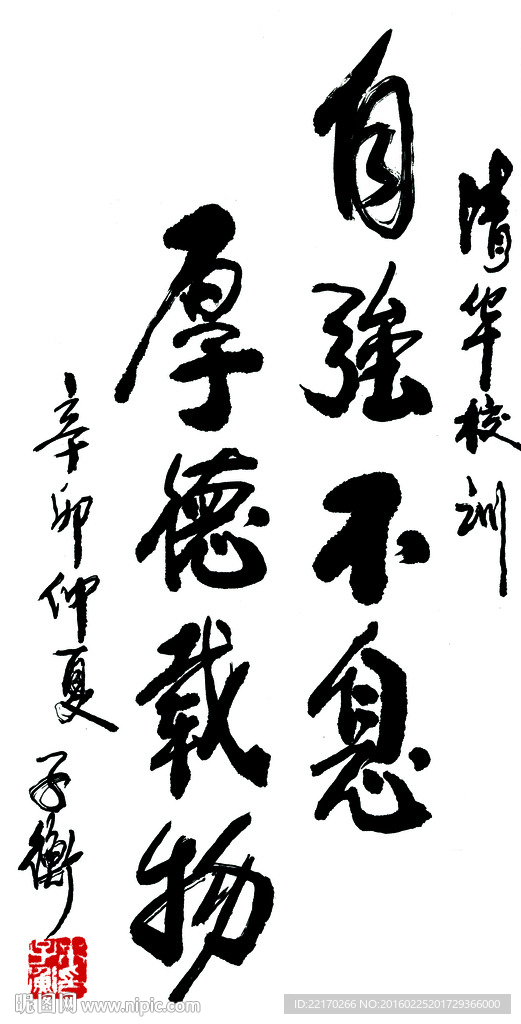 清华校训
自强不息
厚德载物
辛卯仲夏 子衡
昵图网 www.nipic.com
ID:22170266 NO:20160225201729366000